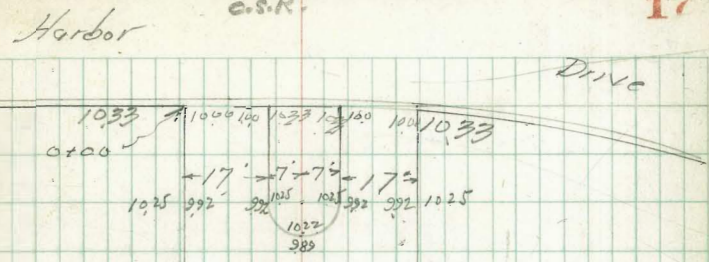 C.S.R. 17
Harbor Drive
10.33 10.00 10.0 10.33 10.33 10.0 10.0 10.33
0+00
17' 7' 7' 17'
10.25 9.92 9.92 10.25 10.25 9.92 9.92 10.25
10.22
9.89